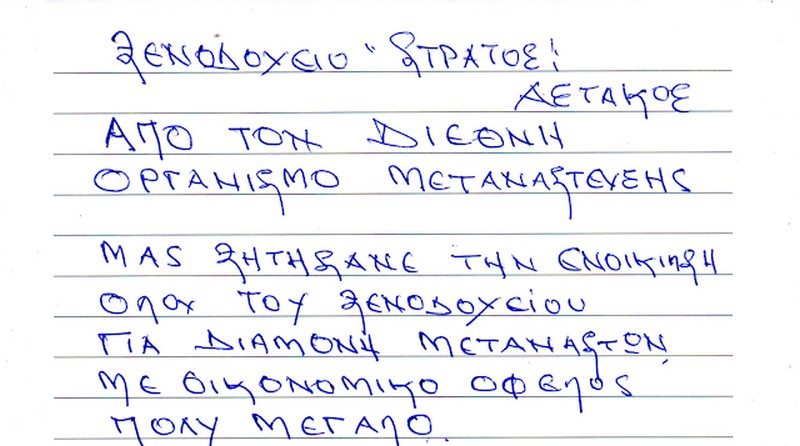 ΞΕΝΟΔΟΧΕΙΟ "ΣΤΡΑΤΟΣ"
ΑΕΤΑΚΟΣ
ΑΠΟ ΤΟΝ ΔΙΕΘΝΗ
ΟΡΓΑΝΙΣΜΟ ΜΕΤΑΝΑΣΤΕΥΣΗΣ
ΜΑΣ ΖΗΤΗΣΑΝΕ ΤΗΝ ΕΝΟΙΚΙΑΣΗ
ΟΛΟΥ ΤΟΥ ΞΕΝΟΔΟΧΕΙΟΥ
ΓΙΑ ΔΙΑΜΟΝΗ ΜΕΤΑΝΑΣΤΩΝ
ΜΕ ΟΙΚΟΝΟΜΙΚΟ ΟΦΕΛΟΣ
ΠΟΛΥ ΜΕΓΑΛΟ.